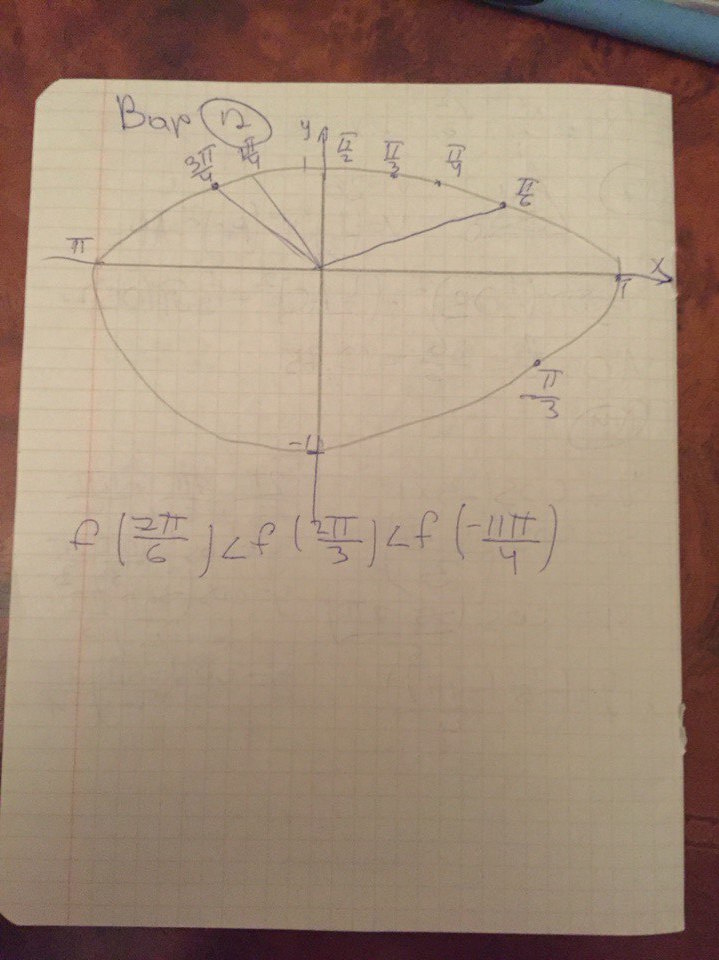 Вар 12
y
3π/4 π/2 π/3 π/4 π/6
1
π x
1
-π/3
-1
f (7π/6) < f (2π/3) < f (-11π/4)